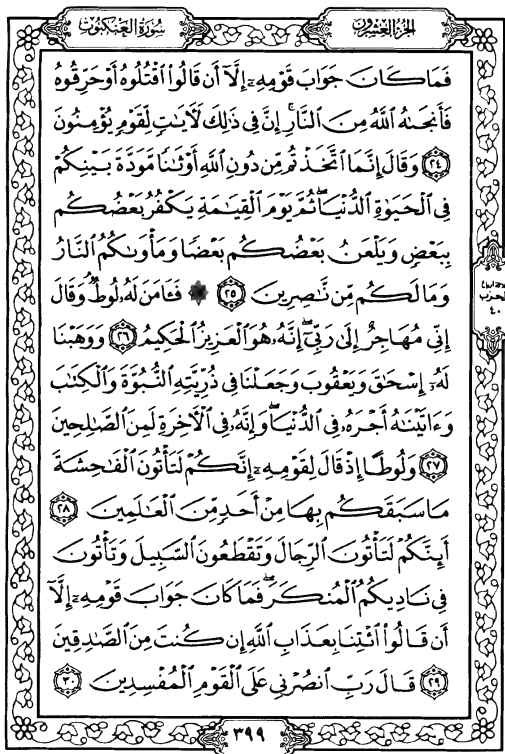 سُورَةُ العَنكَبُوت
الجُزْءُ العِشْرُونَ
فَمَا كَانَ جَوَابَ قَوْمِهِۦٓ إِلَّآ أَن قَالُوا۟ ٱقْتُلُوهُ أَوْ حَرِّقُوهُ
فَأَنجَىٰهُ ٱللَّهُ مِنَ ٱلنَّارِ ۚ إِنَّ فِى ذَٰلِكَ لَـَٔايَٰتٍ لِّقَوْمٍ يُؤْمِنُونَ
٢٤ وَقَالَ إِنَّمَا ٱتَّخَذْتُم مِّن دُونِ ٱللَّهِ أَوْثَٰنًا مَّوَدَّةَ بَيْنِكُمْ
فِى ٱلْحَيَوٰةِ ٱلدُّنْيَا ۖ ثُمَّ يَوْمَ ٱلْقِيَٰمَةِ يَكْفُرُ بَعْضُكُم
بِبَعْضٍ وَيَلْعَنُ بَعْضُكُم بَعْضًا وَمَأْوَىٰكُمُ ٱلنَّارُ
وَمَا لَكُم مِّن نَّٰصِرِينَ ٢٥ ۞ فَـَٔامَنَ لَهُۥ لُوطٌ ۘ وَقَالَ
إِنِّى مُهَاجِرٌ إِلَىٰ رَبِّىٓ ۖ إِنَّهُۥ هُوَ ٱلْعَزِيزُ ٱلْحَكِيمُ ٢٦ وَوَهَبْنَا
لَهُۥٓ إِسْحَٰقَ وَيَعْقُوبَ وَجَعَلْنَا فِى ذُرِّيَّتِهِ ٱلنُّبُوَّةَ وَٱلْكِتَٰبَ
وَءَاتَيْنَٰهُ أَجْرَهُۥ فِى ٱلدُّنْيَا ۖ وَإِنَّهُۥ فِى ٱلْـَٔاخِرَةِ لَمِنَ ٱلصَّٰلِحِينَ
٢٧ وَلُوطًا إِذْ قَالَ لِقَوْمِهِۦٓ إِنَّكُمْ لَتَأْتُونَ ٱلْفَٰحِشَةَ
مَا سَبَقَكُم بِهَا مِنْ أَحَدٍ مِّنَ ٱلْعَٰلَمِينَ ٢٨
أَئِنَّكُمْ لَتَأْتُونَ ٱلرِّجَالَ وَتَقْطَعُونَ ٱلسَّبِيلَ وَتَأْتُونَ
فِى نَادِيكُمُ ٱلْمُنكَرَ ۖ فَمَا كَانَ جَوَابَ قَوْمِهِۦٓ إِلَّآ
أَن قَالُوا۟ ٱئْتِنَا بِعَذَابِ ٱللَّهِ إِن كُنتَ مِنَ ٱلصَّٰدِقِينَ
٢٩ قَالَ رَبِّ ٱنصُرْنِى عَلَى ٱلْقَوْمِ ٱلْمُفْسِدِينَ ٣٠
الحزب
٤٠
٣٩٩